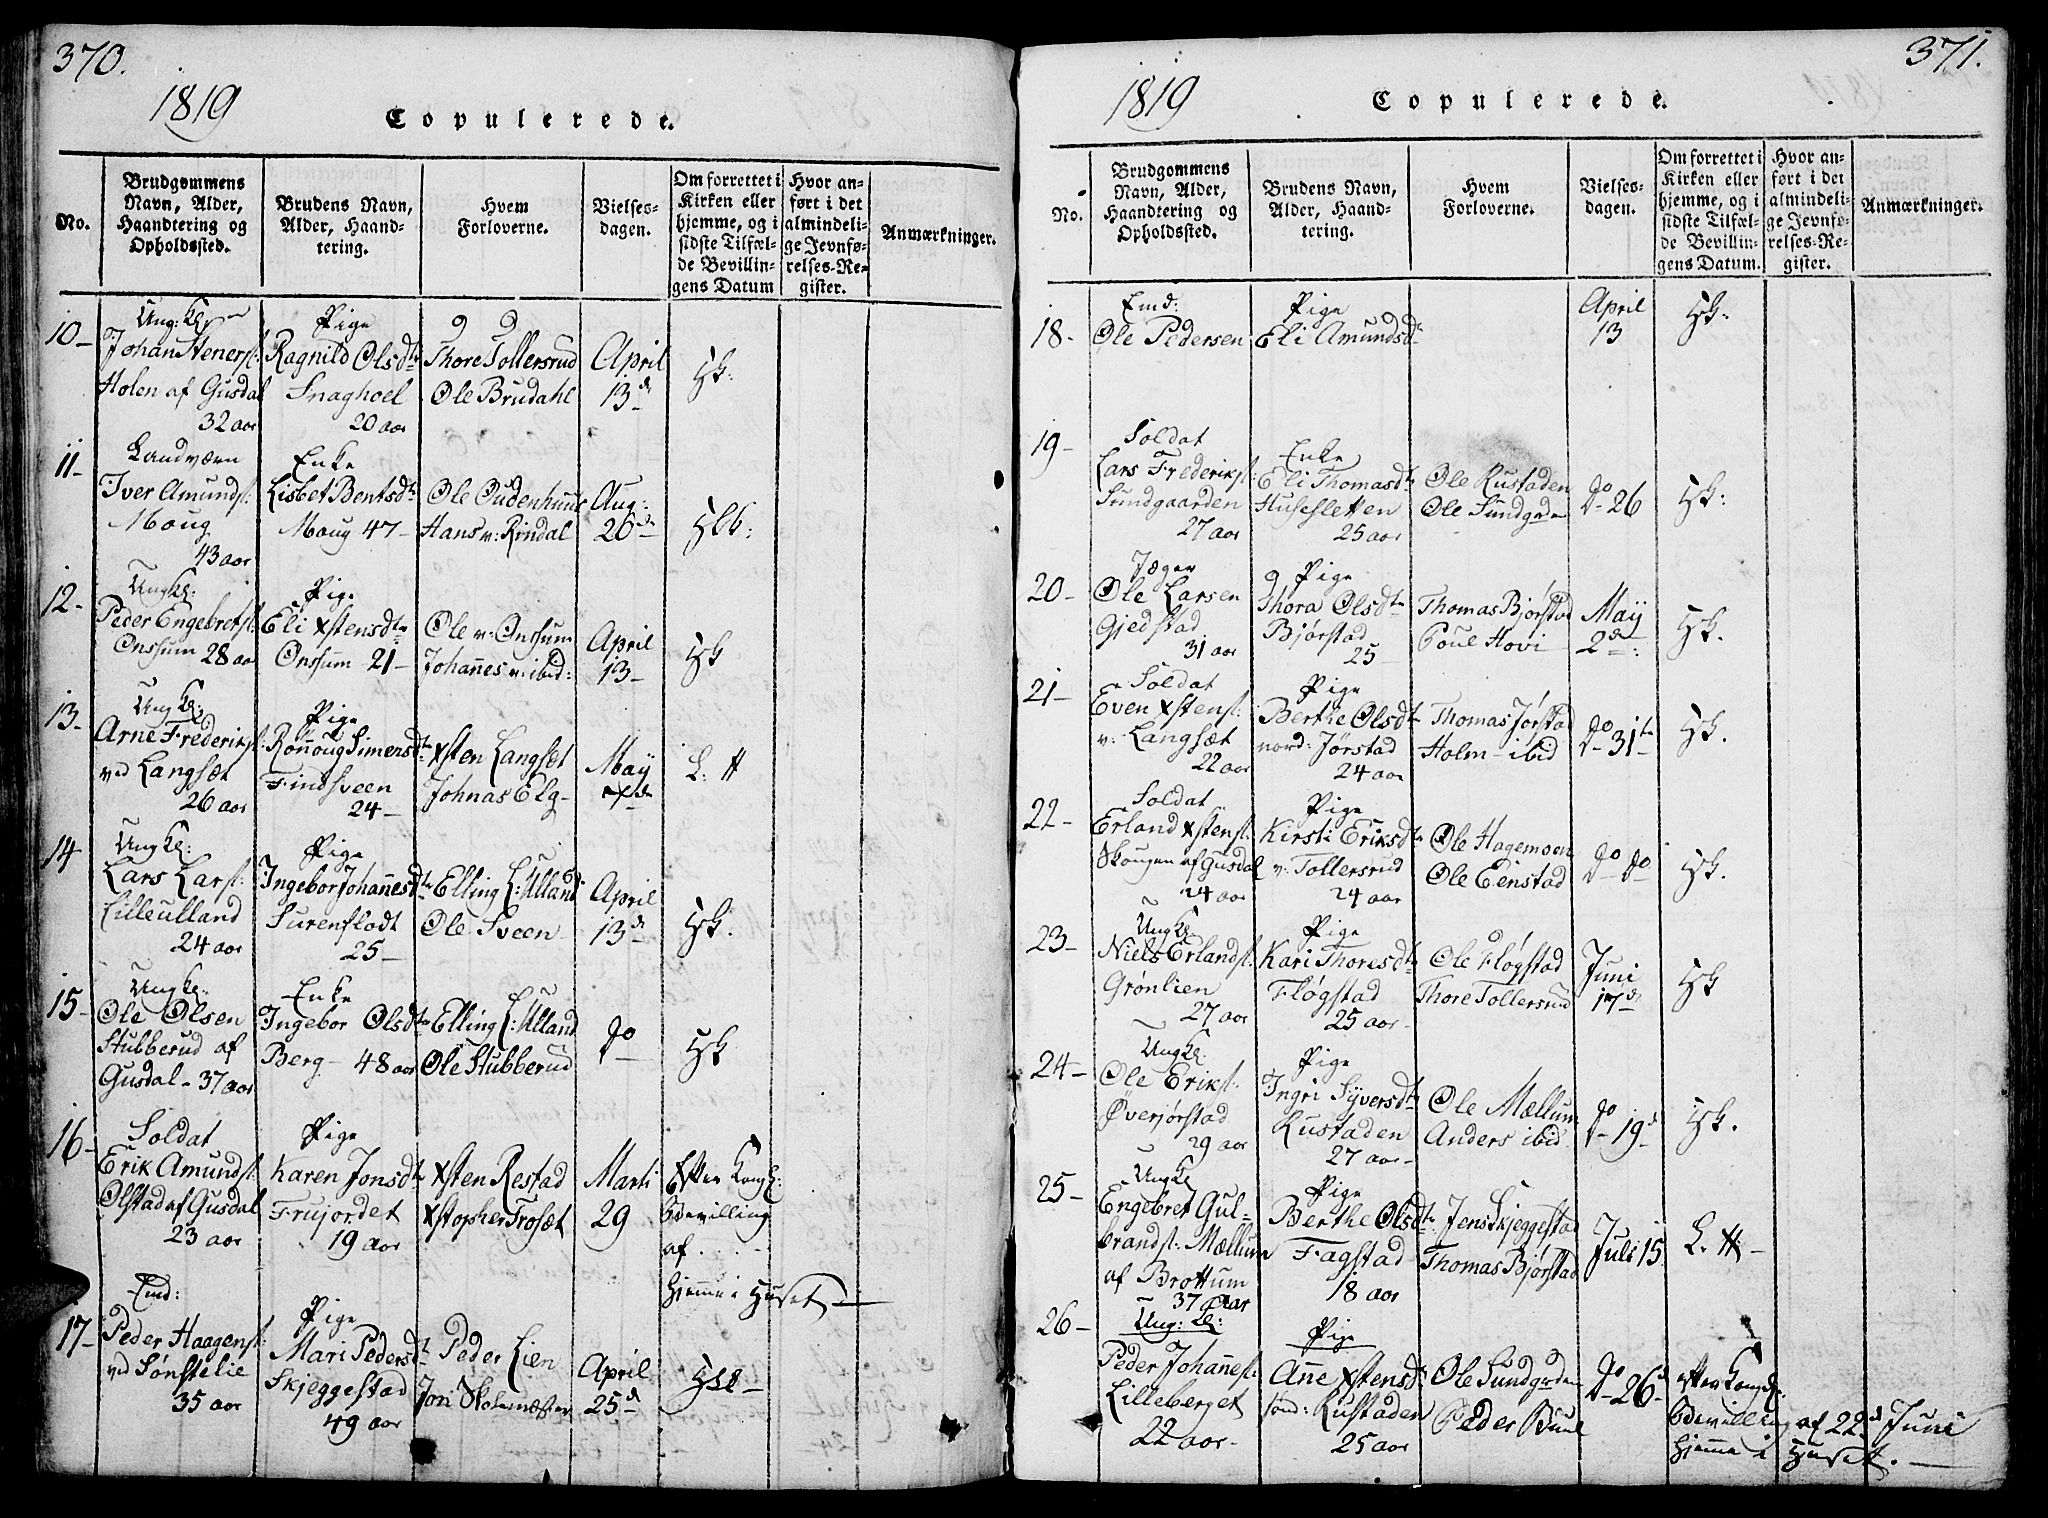 370.
1819
Copulerede.
No.
Brudgommens
Navn, Alder,
Haandtering og
Opholdssted.
Brudens Navn,
Alder, Haand-
tering.
Hvem
Forloverne.
Vielses-
dagen.
Om forrettet i
Kirken eller
hjemme, og i
sidste Tilfæl-
de Bevillin-
gens Datum
Hvor an-
ført i det
almindeli-
ge Jevnfø-
relses-Re-
gister.
Anmærkninger.
10-
Ung: K
Johan Stenersl:
Holen af Gusdal
32 aar
Pige
Ragnild Olsdtr
Snaghoel
20 aar
Thore Tollersrud
Ole Brudahl
April
13d
Hk:
11-
Landværn
Iver Amundsl:
Moug
43 aar
Enke
Lisbet Bentsdtr
Moug 47-
Ole Oudenhuus
Hans v: Rindal
Aug:
20d
12-
Ungk:
Peder Engebretsl:
Onssum 28 aar
Pige
Eli Xstensdtr
Onssum 21-
Ole v: Onssum
Johannes v: ibid:
April
13-
Hk
13-
Ungk:
Arne Frederiksl:
ved Langsæt
26 aar
Pige
Ronnoug Simensdtr
Findsveen
24-
Xsten Langsæt
Johnas Elg-
May
L: H
14
Ungk:
Lars Larsl:
Lilleulland
24 aar
Pige
Ingebor Johannesdtr
Surenflodt
25-
Elling L: Ulland
Ole Sveen
April
13d
Hk.
15-
Ungk:
Ole Olsen
Stubberud af
Gusdal - 37 aar
Enke
Ingebor Olsdtr
Berg - 48 aar
Elling L: Ulland
Ole Stubberud
Do
Hk
16-
Soldat
Erik Amundsl:
Olstad af Gusdal
23 aar
Pige
Karen Jonsdtr
Frujordet
19 aar
Xsten Restad
Xstopher Trosæt
Marti
29
Efter Kongl:
Bevilling
af . . . -
hjemme i Huset
17-
Emd:
Peder Haagensl:
ved Sønstelie
35 aar
Pige
Mari Pedersdt
Skjeggestad
49 aar
Peder Lien
Jon Skolemæster
April
25d
371.
1819
Copulerede.
No.
Brudgommens
Navn, Alder,
Haandtering og
Opholdssted.
Brudens Navn,
Alder, Haand-
tering.
Hvem
Forloverne.
Vielses-
dagen.
Om forrettet i
Kirken eller
hjemme, og i
sidste Tilfæl-
de Bevillin-
gens Datum.
Hvor an-
ført i det
almindeli-
ge Jevnfø-
relses-Re-
gister.
Anmærkninger.
18-
Emd:
Ole Pedersen
Pige
Eli Amundsd
April
13
Hk:
19-
Soldat
Lars Frederiksl:
Sundgaarden
27 aar
Enke
Eli Thomasdtr
Husesletten
25 aar
Ole Rustaden
Ole Sundgrden
Do 26
Hk:
20-
Jæger
Ole Larsen
Gjedstad
31 aar
Pige
Thora Olsdtr
Bjørstad
25
Thomas Bjørstad
Poul Hovi
May
2d:
Hk.
21-
Soldat
Even Xstensl:
v: Langsæt
22 aar
Pige
Berthe Olsdtr
nord: Jørstad
24 aar
Thomas Jørstad
Holm - ibid
Do 31te
Hk.
22-
Soldat
Erland Xstensl:
Skougen af Gusdal
24 aar
Pige
Kirsti Eriksdtr
v: Tollersrud
24 aar
Ole Hagemoen
Ole Eenstad
Do Do
Hk.
23-
Ungk
Niels Erlandsl:
Grønlien
27 aar
Pige
Kari Thoresdtr
Fløgstad
25 aar-
Ole Fløgstad
Thore Tollersrud
Juni
17d
Hk
24-
Ungk:
Ole Eriksl:
Øverjørstad
29 aar
Pige
Ingri Syversdtr
Rustaden
27 aar-
Ole Mællum
Anders ibid
Do 19d
Hk.
25-
Ungk
Engebret Gul-
brandsl: Mællum
af Brottum
37 aar
Pige
Berthe Olsdtr
Fagstad
18 aar
Jens Skjeggestad
Thomas Bjørstad
Juli 15
L. H-
26-
Ung: K:
Peder Johannesl:
Lilleberget
22 aar-
Pige
Anne Xstensd
sönd: Rustaden
25 aar
Ole Sundgrden
Peder Buul
Do 26d
efter Kongl:
Bevilling af 22d Juni
hjemme i Huset.